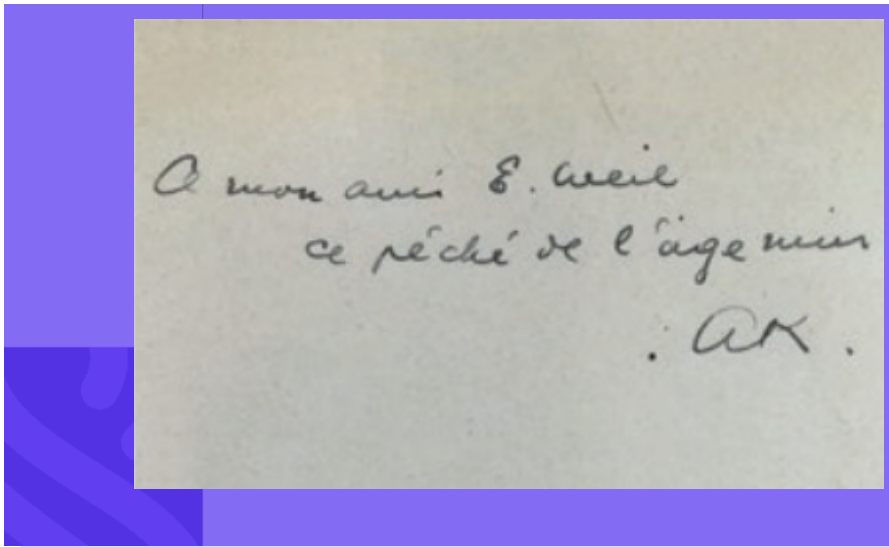 A mon ami E. Weil
ce péché de l'âge mûr
. AK .